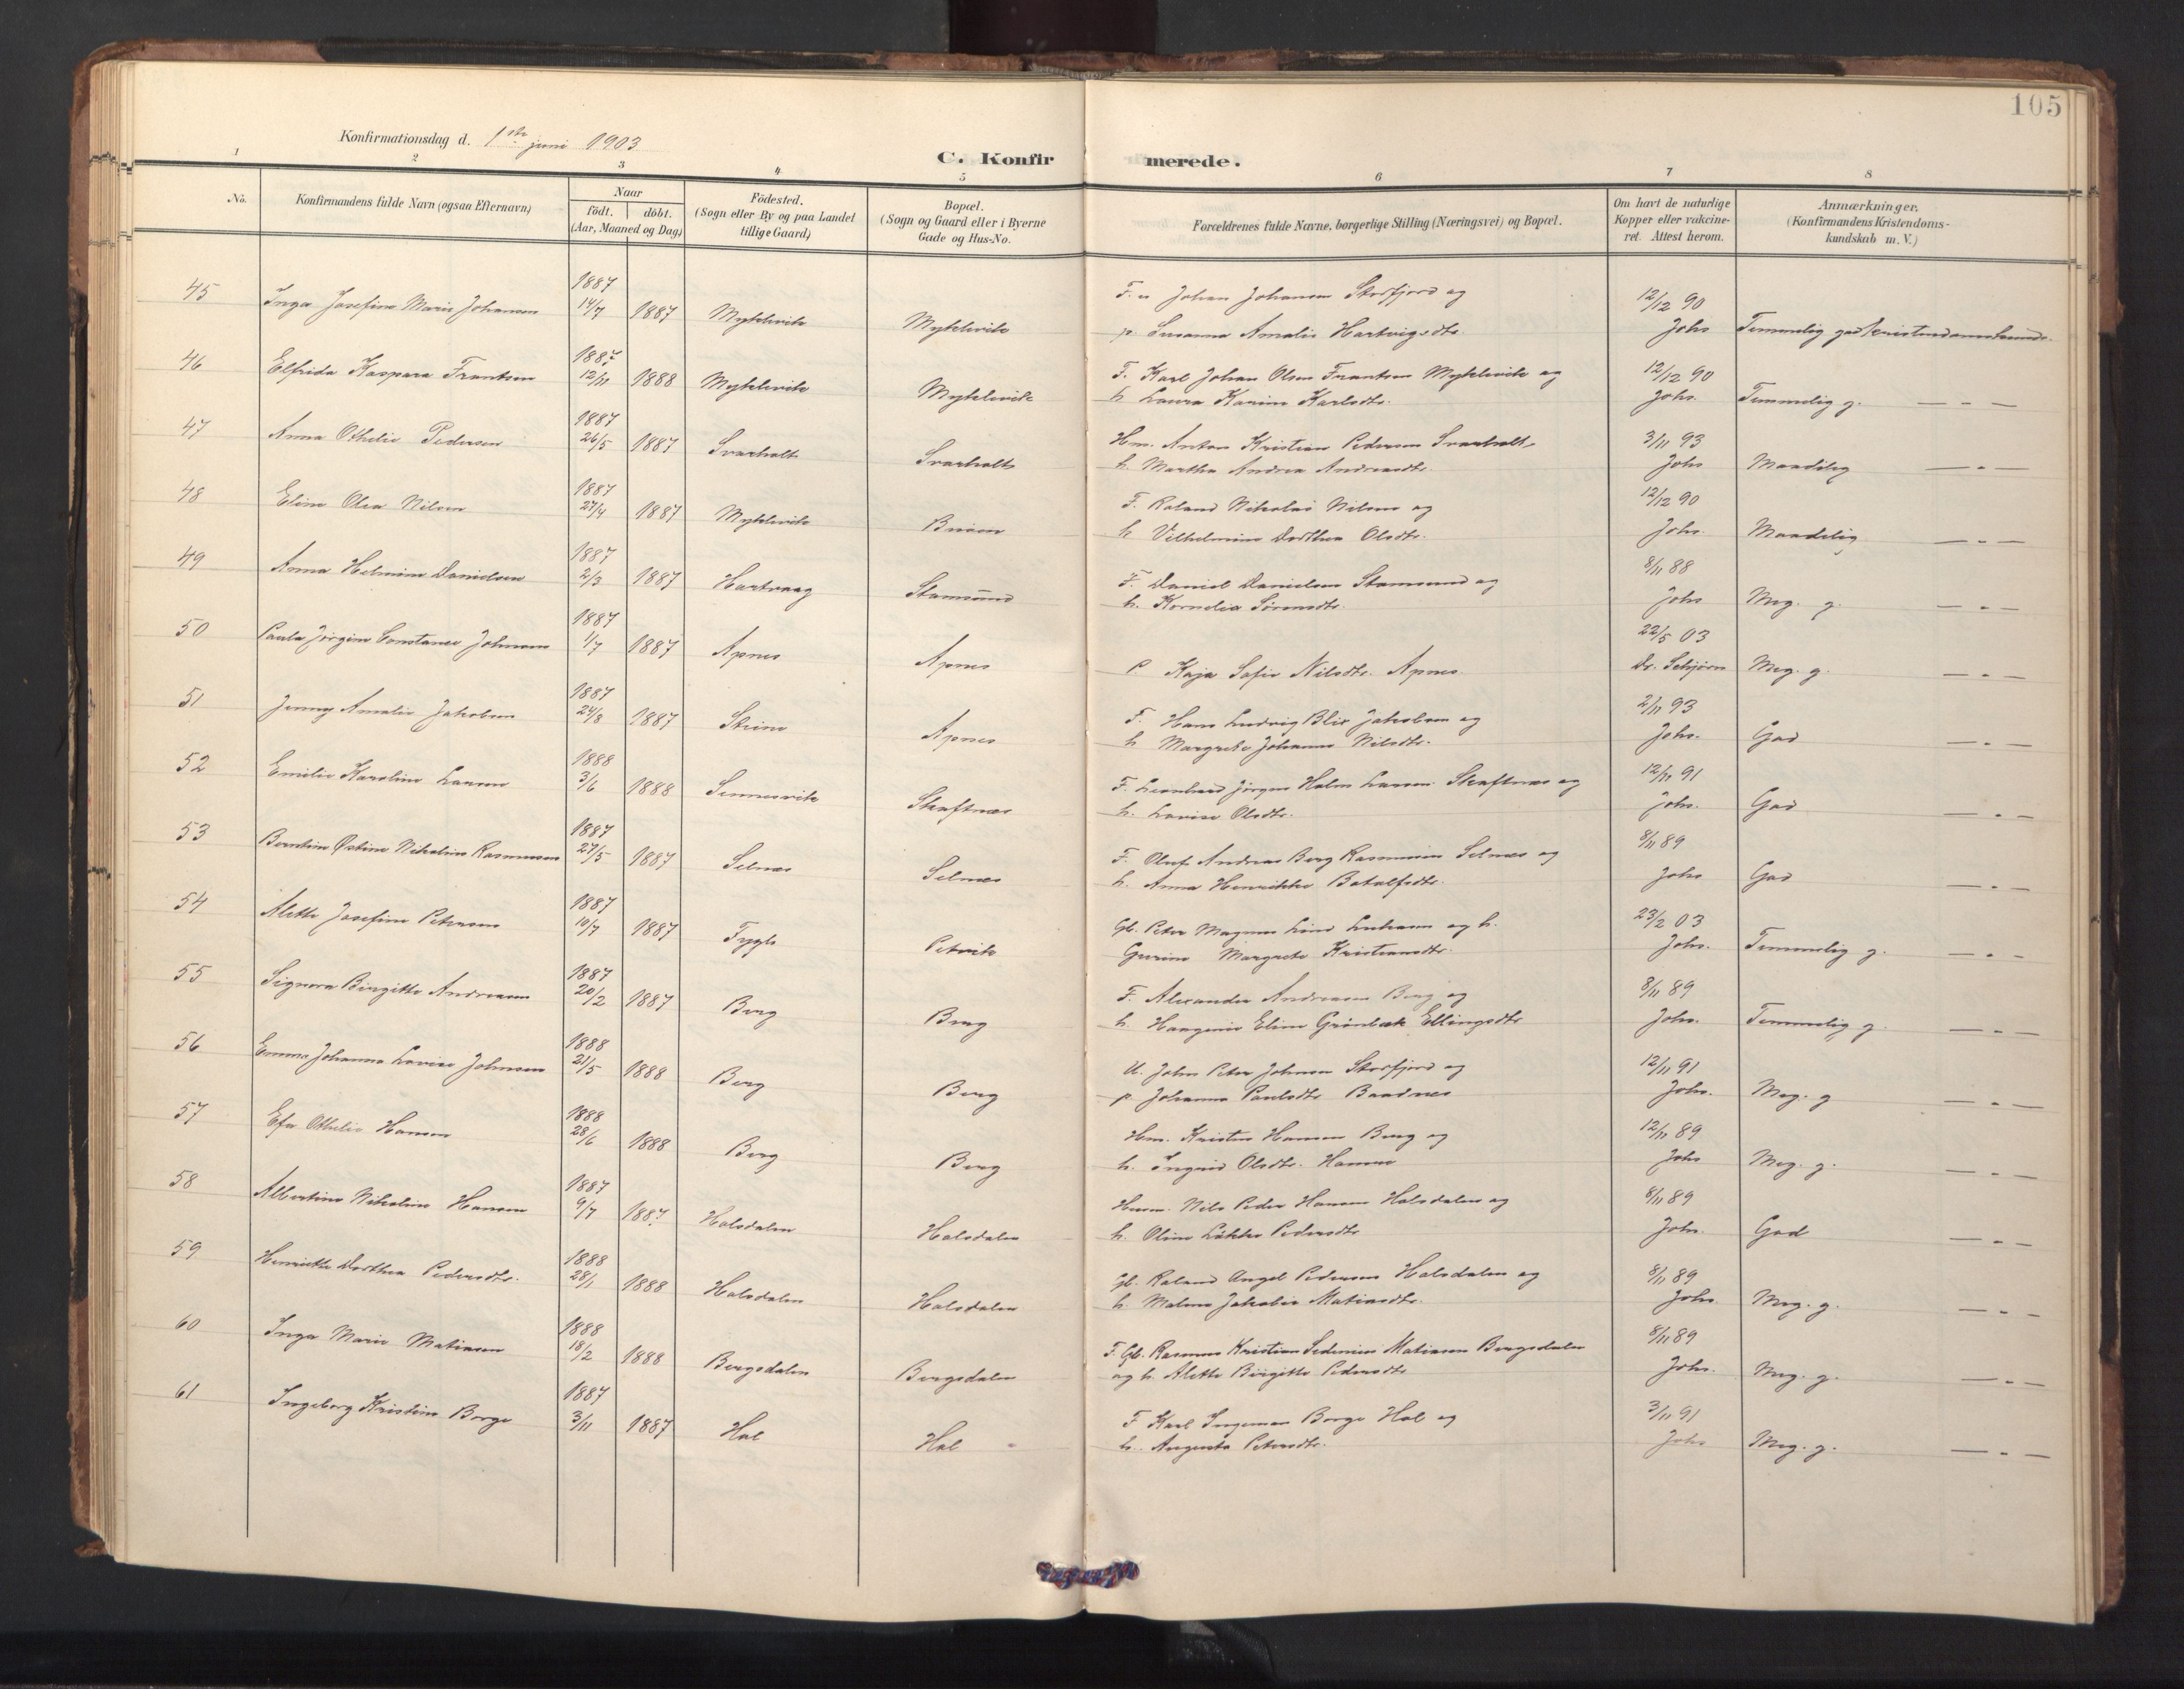 105
Konfirmationsdag d. 1ste juni 1903
C. Konfirmerede.
1 2 3 4 5 6 7 8
No.
Konfirmandens fulde Navn (ogsaa Efternavn)
Naar
födt. döbt.
(Aar, Maaned og Dag)
Födested.
(Sogn eller By og paa Landet
tillige Gaard)
Bopæl.
(Sogn og Gaard eller i Byerne
Gade og Hus-No.
Forældrenes fulde Navne, borgerlige Stilling (Næringsvei) og Bopæl.
Om havt de naturlige
Kopper eller vakcine-
ret. Attest herom.
Anmærkninger.
(Konfirmandens Kristendoms-
kundskab m. V.)
45 Inga Josefine Marie Johansen 1887 14/7 1887 Myklevik Myklevik
F. u Johan Johansen Storfjord og 12/12 90
p. Susanna Amalie Hartvigsdtr. Johs Temmelig god kristendomskunds.
46 Elfrida Kaspara Frantsen 1887 12/11 1888 Myklevik Myklevik
F. Karl Johan Olsen Frantsen Myklevik og 12/12 90
h Laura Karine Karlsdtr. Johs. Temmelig g. — " —
47 Anna Othelie Pedersen 1887 26/5 1887 Svarholt Svarholt
Hm. Anton Kristian Pedersen Svarholt 3/11 93
h. Martha Andrea Andreasdtr. Johs Maadelig — " —
48 Eline Olea Nilsen 1887 27/4 1887 Myklevik
F. Roland Nikolai Nilsen og 12/12 90
h Vilhelmine Dorthea Olsdtr. Johs. Maadelig — " —
49 Anna Helmine Danielsen 1887 2/3 1887 Hartvaag Stamsund
F. Daniel Danielsen Stamsund og 8/11 88
h. Kornelia Sörensdtr. Johs Meg. g. — " —
50 Paula Jörgine Constanse Johnsen 1887 1/7 1887 Apnes Apnes
22/5 03
p Kaja Sofie Nilsdtr. Apnes. Dr. Schjörn Meg. g. — " —
51 Jenny Amalie Jakobsen 1887 24/8 1887 Steine Apnes
F. Hans Ludvig Blix Jakobsen og 2/11 93
h Margrete Johanna Nilsdtr. Johs. God — " —
52 Emilie Karoline Larsen 1888 3/6 1888 Sennesvik Skaftnes
F. Leonhard Jörgen Holm Larsen Skaftnes og 12/11 91
h. Lovise Olsdtr. Johs. God — " —
53 Berntine Østine Nikoline Rasmussen 1887 27/5 1887 Selnes Selnes
F. Oluf Andreas Berg Rasmussen Selnes og 8/11 89
h. Anna Henrikke Botolfsdtr. Johs God — " —
54 Alette Josefine Petersen 1887 10/7 1887 Fygle Petvik
Gb. Peter Magnus Lind og h. 23/2 03
Gurine Margrete Kristiansdtr. Johs. Temmelig g. — " —
55 Signora Birgitte Andreasen 1887 20/2 1887 Berg Berg
F. Alexander Andreasen Berg og 8/11 89
h. Haagine Eline Grönbæk Ellingsdtr Johs. Temmelig g. — " —
56 Emma Johanna Lovise Johnsen 1888 21/5 1888 Berg Berg
U. John Peter Johnsen Storfjord og 12/11 91
p. Johanna Paulsdtr Baadnes Johs. Meg. g — " —
57 Efa Othelie Hansen 1888 28/6 1888 Berg Berg
Hm. Kristen Hansen Berg og 12/11 89
h. Ingrid Olsdtr. Hansen Johs Meg. g. — " —
58 Albertine Nikoline Hansen 1887 9/7 1887 Holsdalen Holsdalen
Husm. Nils Peder Hansen Holsdalen og 8/11 89
h. Oline Lökke Pedersdtr Johs. God — " —
59 Henriette Dorthea Pedersdtr. 1888 28/1 1888 Holsdalen Holsdalen
Gb. Roland Angel Pedersen Holsdalen og 8/11 89
h. Malene Jakobie Matiasdtr. Johs. Meg. g. — " —
60 Inga Marie Matiasen 1888 18/2 1888 Bergsdalen Bergsdalen
F. Gb. Rasmus Kristian Sedenius Matiasen Bergsdalen 8/11 89
og h. Alette Birgitte Pedersdtr Johs. Meg. g. — " —
61 Ingeborg Kristine Borge 1887 3/11 1887 Hol Hol
F Karl Ingeman Borge Hol og 3/11 91
h. Augusta Petersdtr. Johs Meg. g. — " —